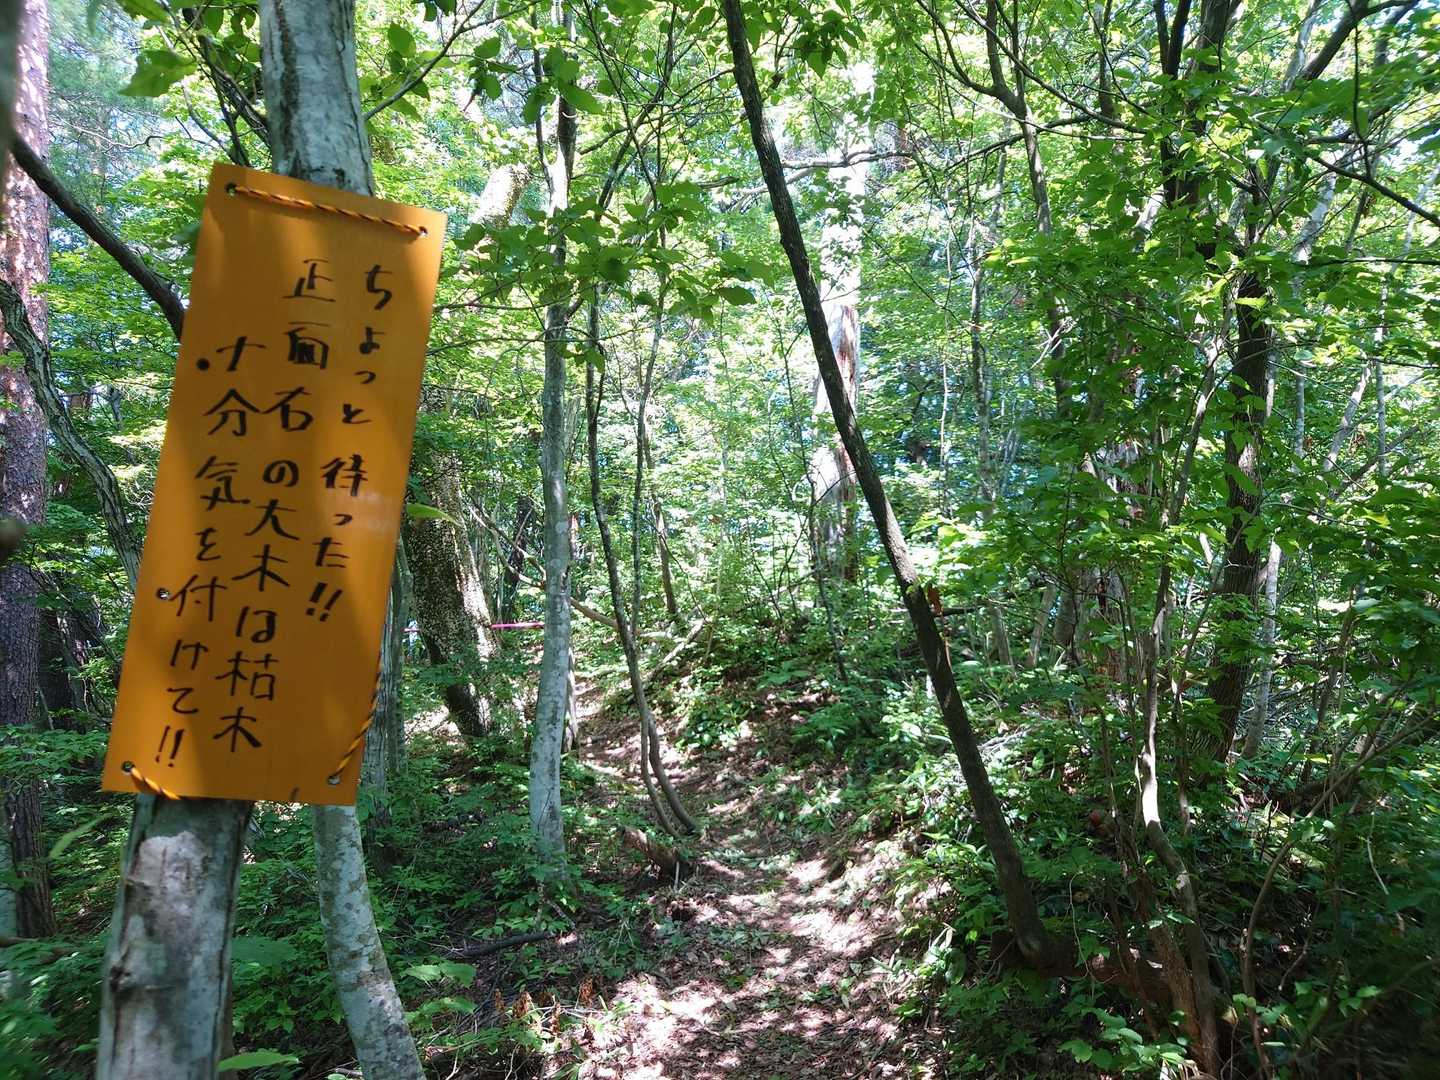 ちょっと待った!!
正面右の大木は枯木
十分気を付けて!!